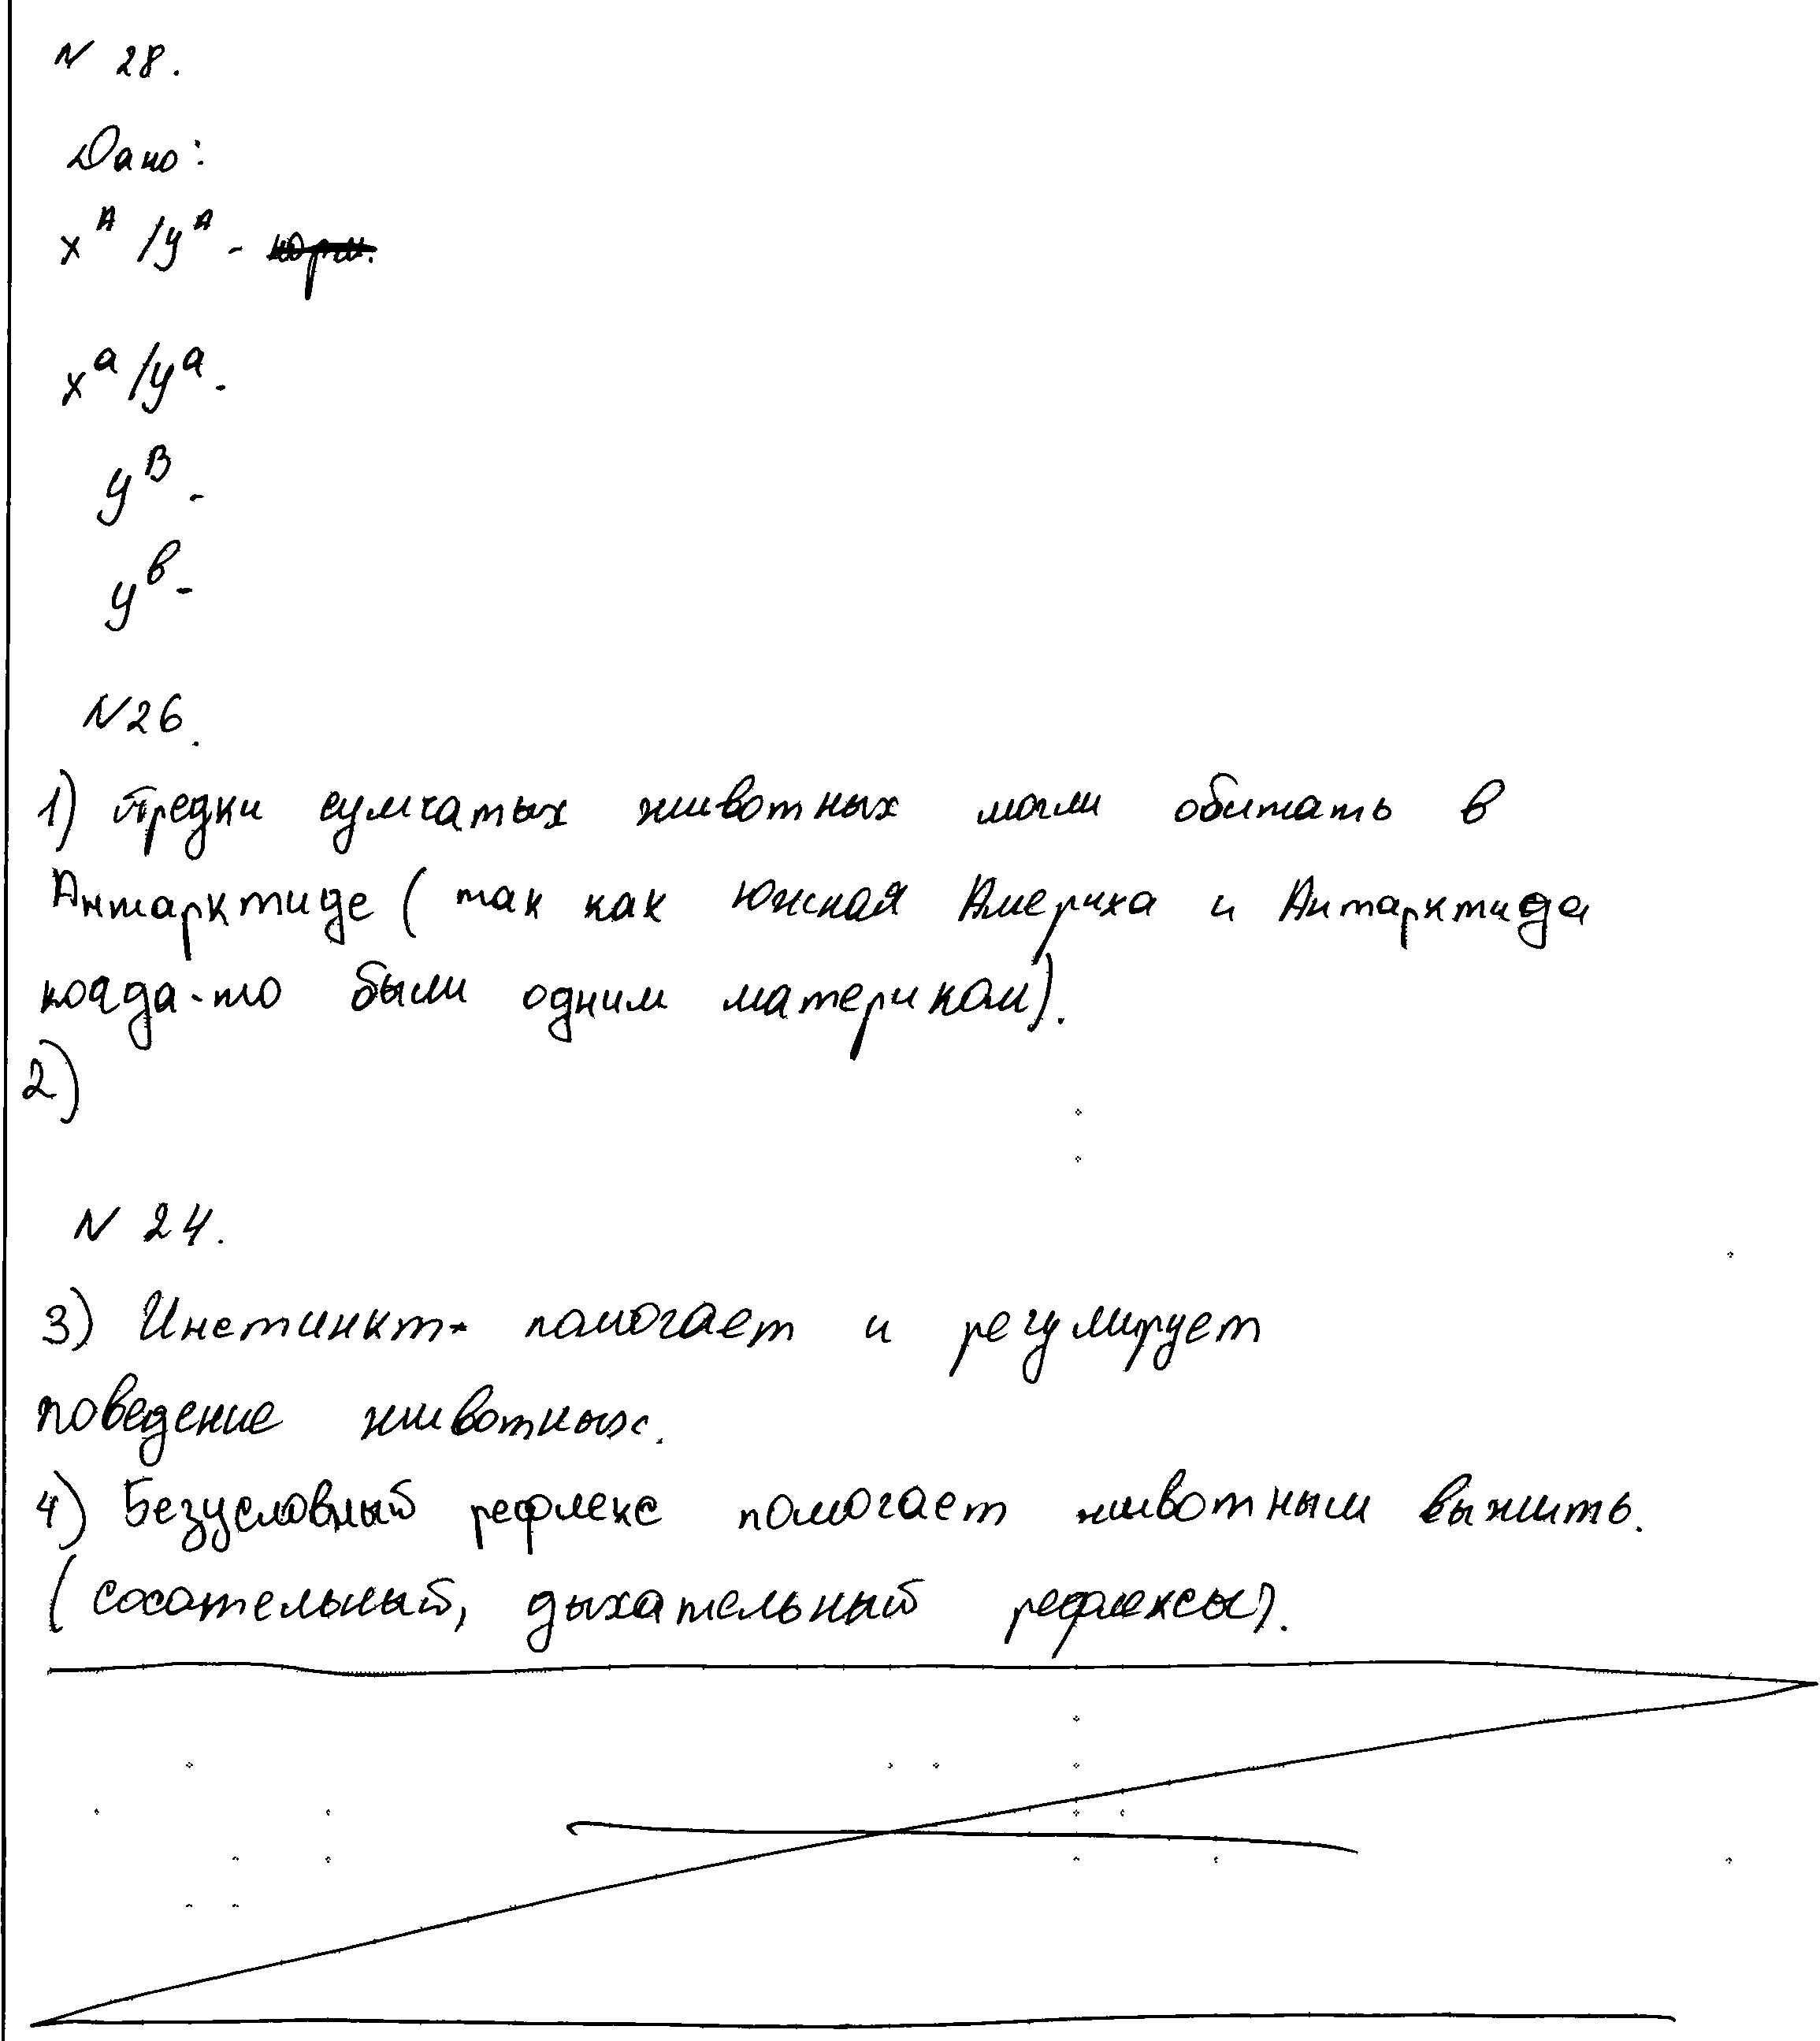 N 28.
Дано:
x^A /y^A -
x^a /y^a -
y^B -
y^b -
N26.
1) Предки сумчатых животных могли обитать в
Антарктиде ( так как Южная Америка и Антарктида
когда-то были одним материком).
2)
N 24.
3) Инстинкт- помогает и регулирует
поведение животных.
4) Безусловный рефлекс помогает животным выжить.
( сосательный, дыхательный рефлексы).